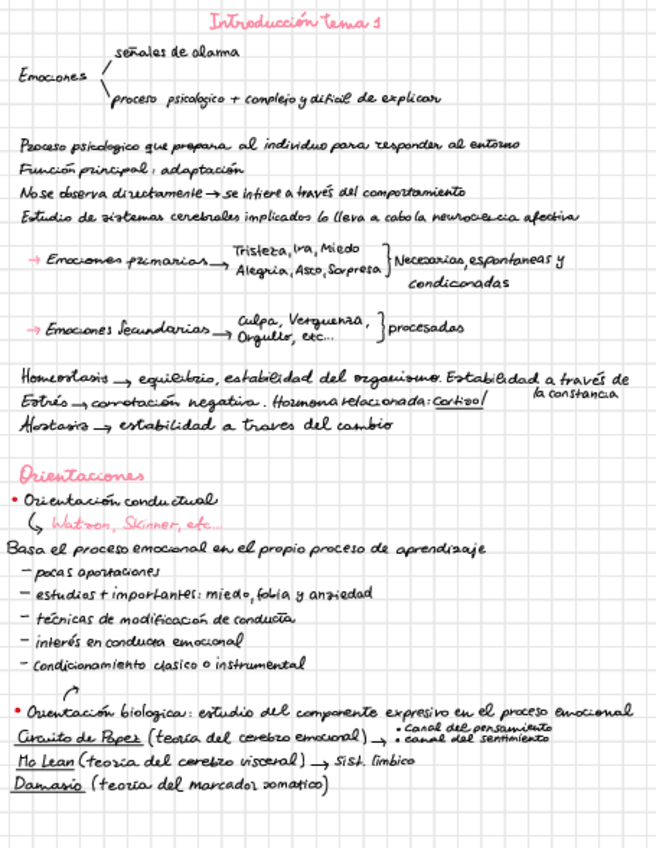 Introducción tema 1
señales de alarma
Emociones
proceso psicologico + complejo y dificil de explicar
Proceso psicologico que prepara al individuo para responder al entorno
Función principal: adaptación
No se observa directamente → se infiere a través del comportamiento
Estudio de sistemas cerebrales implicados lo lleva a cabo la neurociencia afectiva
→ Emociones primarias → Tristeza, Ira, Miedo
Alegria, Asco, Sorpresa } Necesarias, espontaneas y
condicionadas
→ Emociones Secundarias → Culpa, Verguenza,
Orgullo, etc... } procesadas
Homeostasis → equilibrio, estabilidad del organismo. Estabilidad a través de
la constancia
Estrés → connotación negativa. Hormona relacionada: Cortisol
Alostasis → estabilidad a traves del cambio
Orientaciones
• Orientación conductual
Watson, Skinner, etc...
Basa el proceso emocional en el propio proceso de aprendizaje
- pocas aportaciones
- estudios + importantes: miedo, fobia y ansiedad
- técnicas de modificación de conducta
- interés en conducta emocional
- condicionamiento clasico o instrumental
• Orientación biologica: estudio del componente expresivo en el proceso emocional
Circuito de Papez (teoría del cerebro emocional) → • Canal del pensamiento
• canal del sentimiento
Mc Lean (teoría del cerebro visceral) → Sist. limbico
Damasio (teoría del marcador somatico)